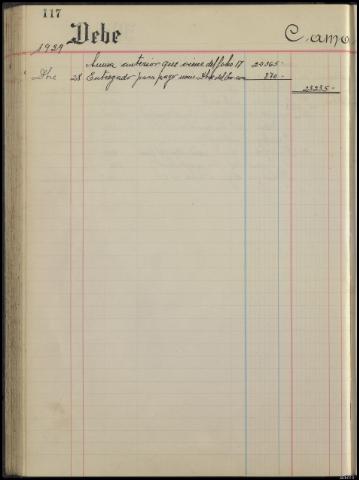 117
Debe Camo
1929
Suma anterior que viene del folio 17 20365-
Dbe 28 Entregado para pago 870-